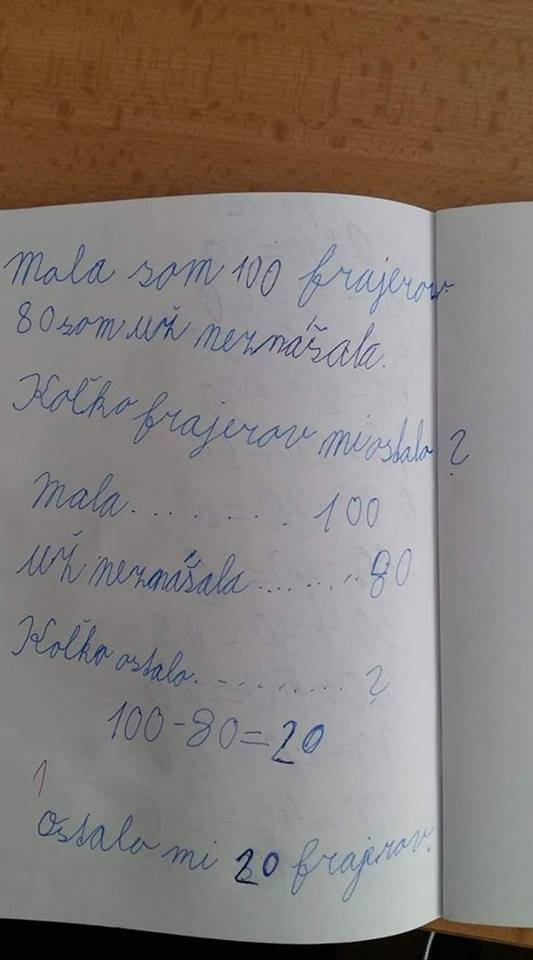 Mala som 100 frajerov
80 som už neznášala.
Koľko frajerov mi ostalo ?
Mala......... 100
už neznášala....... 80
Koľko ostalo........... ?
100-80=20
1
Ostalo mi 20 frajerov.